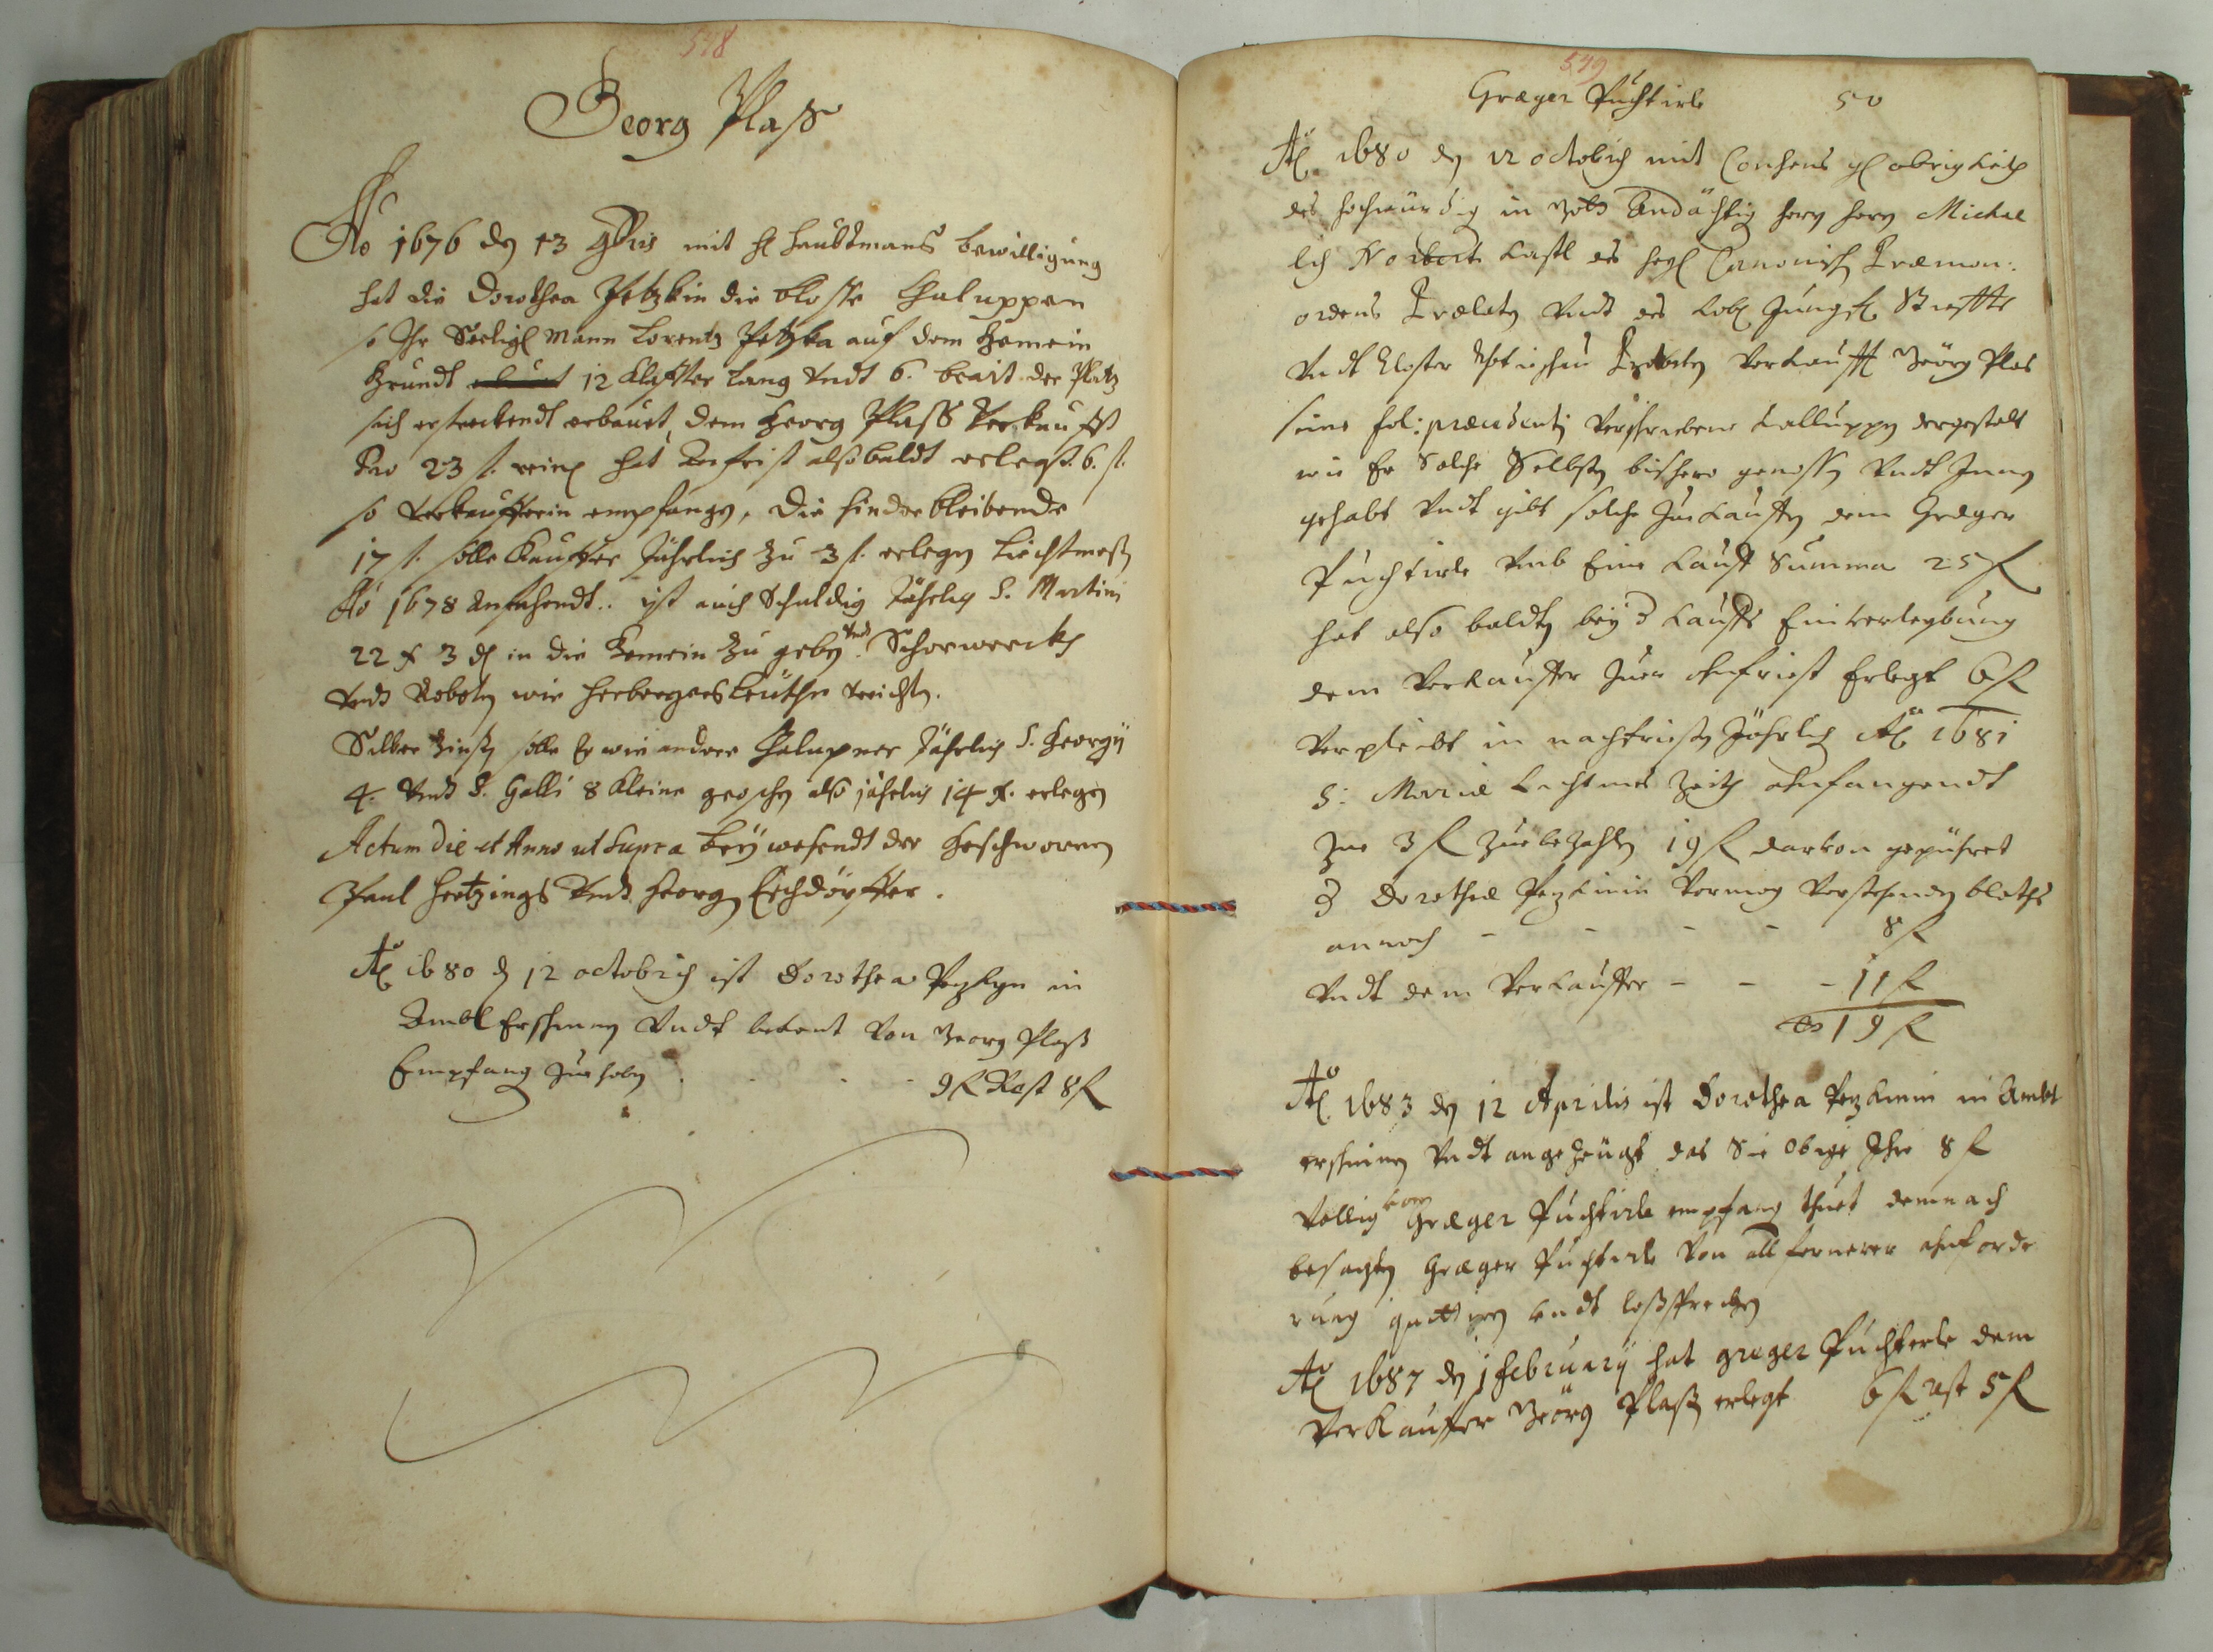 578
Georg Plaß
Ao 1676 den 13 9bris mit H Haubtmans bewilligung
hat die Dorothea Petzkin die blosse Chaluppen
so Ihr Seelig Mann Lorentz Petzka auf dem Gemein
Grundt 12 Klaffter lang Undt 6. breit der Platz
sich erstreckendt erbauet, dem Georg Plaß Verkaufft
Pro 23 f. hat Anfrist alßbaldt erlegt 6. f.
so Verkaufferin empfangen, die hinderbleibende
17 f. solle Kauffer Jährlich zu 3 f. erlegen Liechtmeß
Ao 1678 Anfahendt.. ist auch Schuldig Jährlich S. Martini
22 x 3 d in die Gemein zu geben. Undt Scharwerckh
Undt Roboten wie Herbergersleuthe verrichten.
Silber Zinß solle Er wie andere Chalupner Jährlich S. Georgÿ
4. Undt S. Galli 8 kleine groschen also jährlich 14 x. erlegen
Actum Die et Anno ut Supra Beÿ wesendt der Geschworenen
Paul Hertzings Undt Georg Eichdörffer.
Ao 1680 den 12 octobrich ist Dorothea Pezkyn in
Ambt Erschinen Undt bekent Von Georg Plaß
Empfang zue haben . - . - 9 fl Rest 8 fl
579
Græger Puchtirle 50
Ao 1680 den 12 octobrich mit Consens gl obrigkeit
des hochwürdig in Gott Andächtig herrn herrn Michae
lis Norbert Kastl des heyl Canonisch Præmon:
ordens Prælaten Undt des Löbl Jungfl Stiffts
Undt Closter Chotieschau Probsten Verkaufft Geörg Plas
seine fol: præcedenti Verschriebene kalluppen dergestalt
wie Er Solche Selbsten bishero genossen Undt Innen
gehabt Undt gibt solche zukauffen dem Græger
Puchtirle Umb Eine Kauff Summa 25 fl
hat also baldten beÿ d Kauffs Einverleybung
dem Verkauffer zuer Anfriest Erlegt 6 fl
Verpleibt in nachfristen Jährlich Ao 1681
S: Mariæ Lechtmes Zeith Anfangendt
Zue 3 fl zuebezahlen 19 fl darvon gepühret
d Dorotheæ Pezkinin Vermög Vorstehenden blaths
annoch - - - - 8 fl
Undt dem Verkauffer - - - 11 fl
19 fl
Ao 1683 den 12 Aprilis ist Dorothea Pezkinin in Ambt
erschinen Undt angezeügt das Sie obige Ihre 8 fl
Völlig von Græger Puchtirle empfang thuet demnach
besagten Græger Puchtirle Von all fernerer Anforde
rung quittiren Undt loßsprechen
Ao 1687 den 1 february hat greger Puchterle dem
Verkauffer Geörg Plaß erlegt 6 fl rest 5 fl